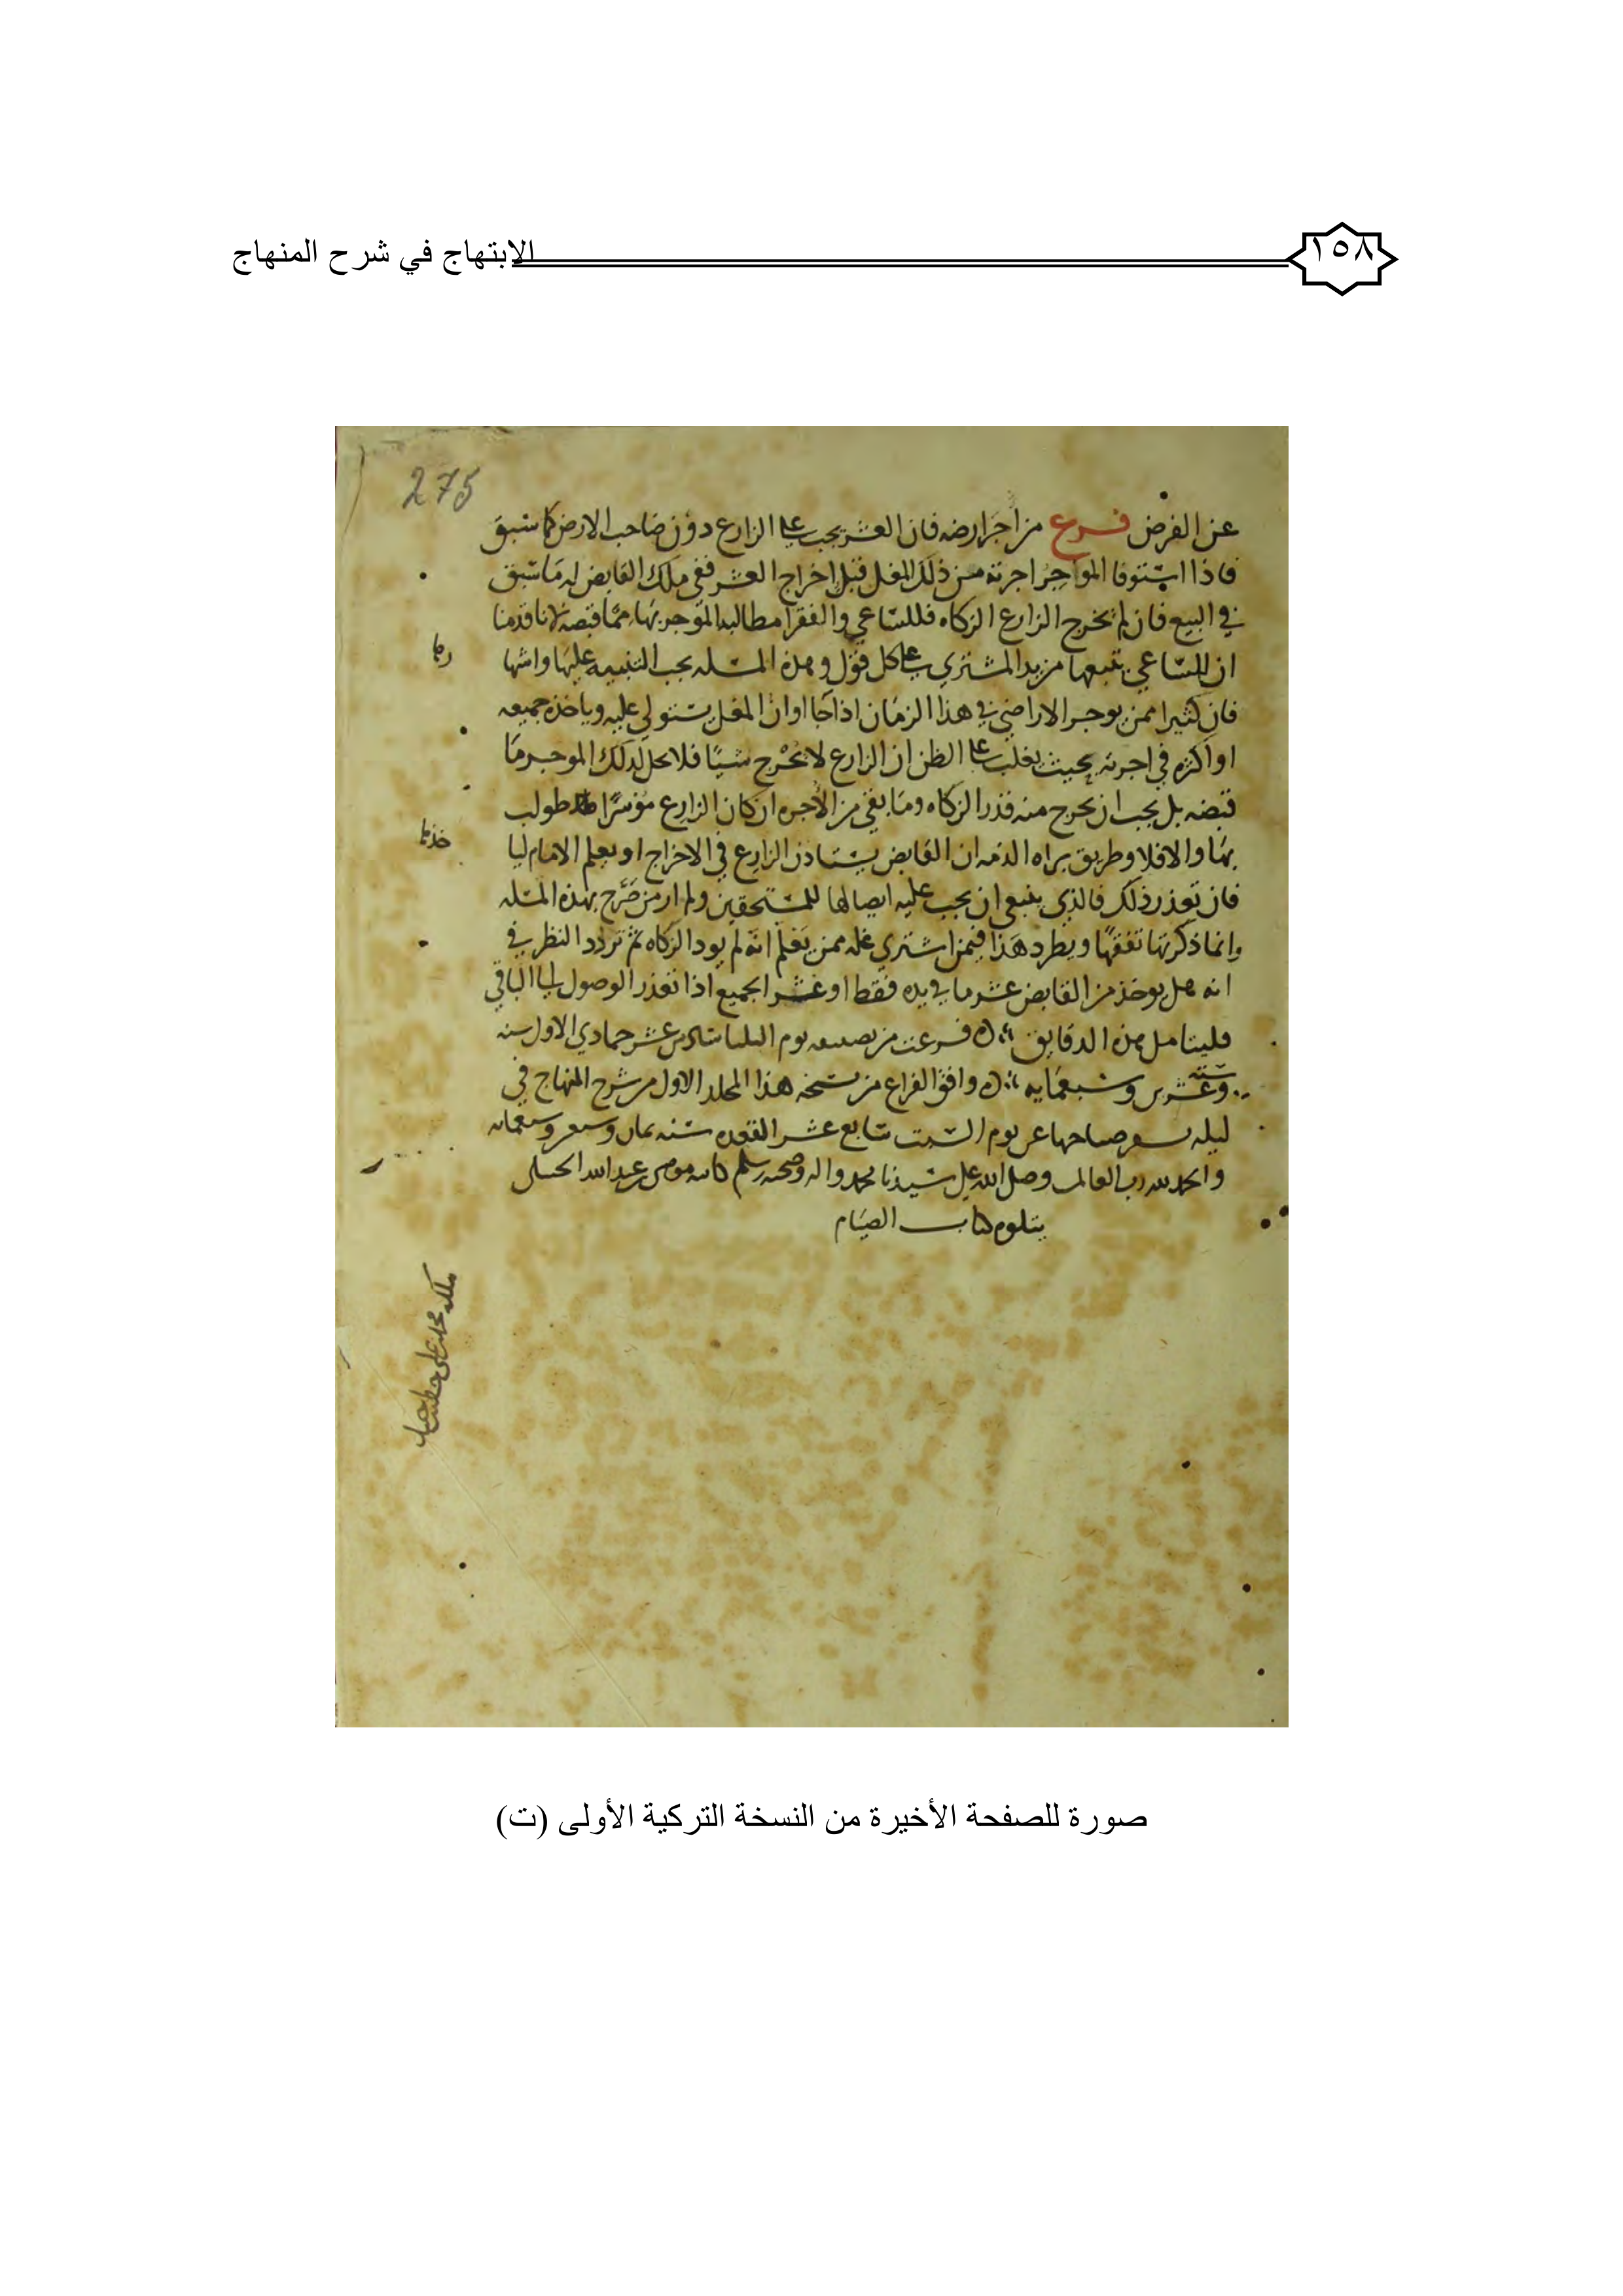 ١٥٨
الابتهاج في شرح المنهاج
275
عن الفرض فرع من أجر ارضه فان العشر يجب على الزارع دون صاحب الارض كما سبق
فاذا استوفا المواجر اجرته من ذلك المغل قبل اخراج العشر ففي ملك القابض له ما سبق
في البيع فان لم يخرج الزارع الزكاه فللساعي والفقرا مطالبه الموجر بها مما قبضه لانا قدمنا
ان للساعي تتبعها من يد المشتري على كل قول وهذه المسله يجب التنبيه عليها واشها
فان كثيرا ممن يوجر الاراضي في هذا الزمان اذا جا اوان المغل يستولي عليه وياخذه جميعه
او اكثره في اجرته بحيث يغلب على الظن ان الزارع لا يخرج شيا فلا يحل لذلك الموجر ما
قبضه بل يجب ان يخرج منه قدر الزكاه وما بقي من الاجره ان كان الزارع موسرا طولب
بها والا فلا وطريق براه الذمه ان القابض يستاذن الزارع في الاخراج او يعلم الامام
فان تعذر ذلك فالذي ينبغي ان يجب عليه ايصالها للمستحقين ولم ار من صرح بهذه المسله
وانما ذكرتها تفقها ويطرد هذا فيمن اشترى غله ممن يعلم انه لم يود الزكاه ثم تردد النظر في
انه هل يوخذ من القابض عشر ما في يده فقط او عشر الجميع اذا تعذر الوصول الى الباقي
فليتامل هذه الدقايق فرغت من تصنيفه يوم الثلثا سادس عشر جمادي الاول سنه
سته وعشرين وسبعمايه وافق الفراغ من نسخه هذا المجلد الاول من شرح المنهاج في
ليله يسفر صباحها عن يوم السبت سابع عشر القعده سنه ثمان وسبعمائه
والحمد لله رب العالمين وصلى الله على سيدنا محمد واله وصحبه وسلم كاتبه موسى بن عبد الله
يتلوه كتاب الصيام
صورة للصفحة الأخيرة من النسخة التركية الأولى (ت)